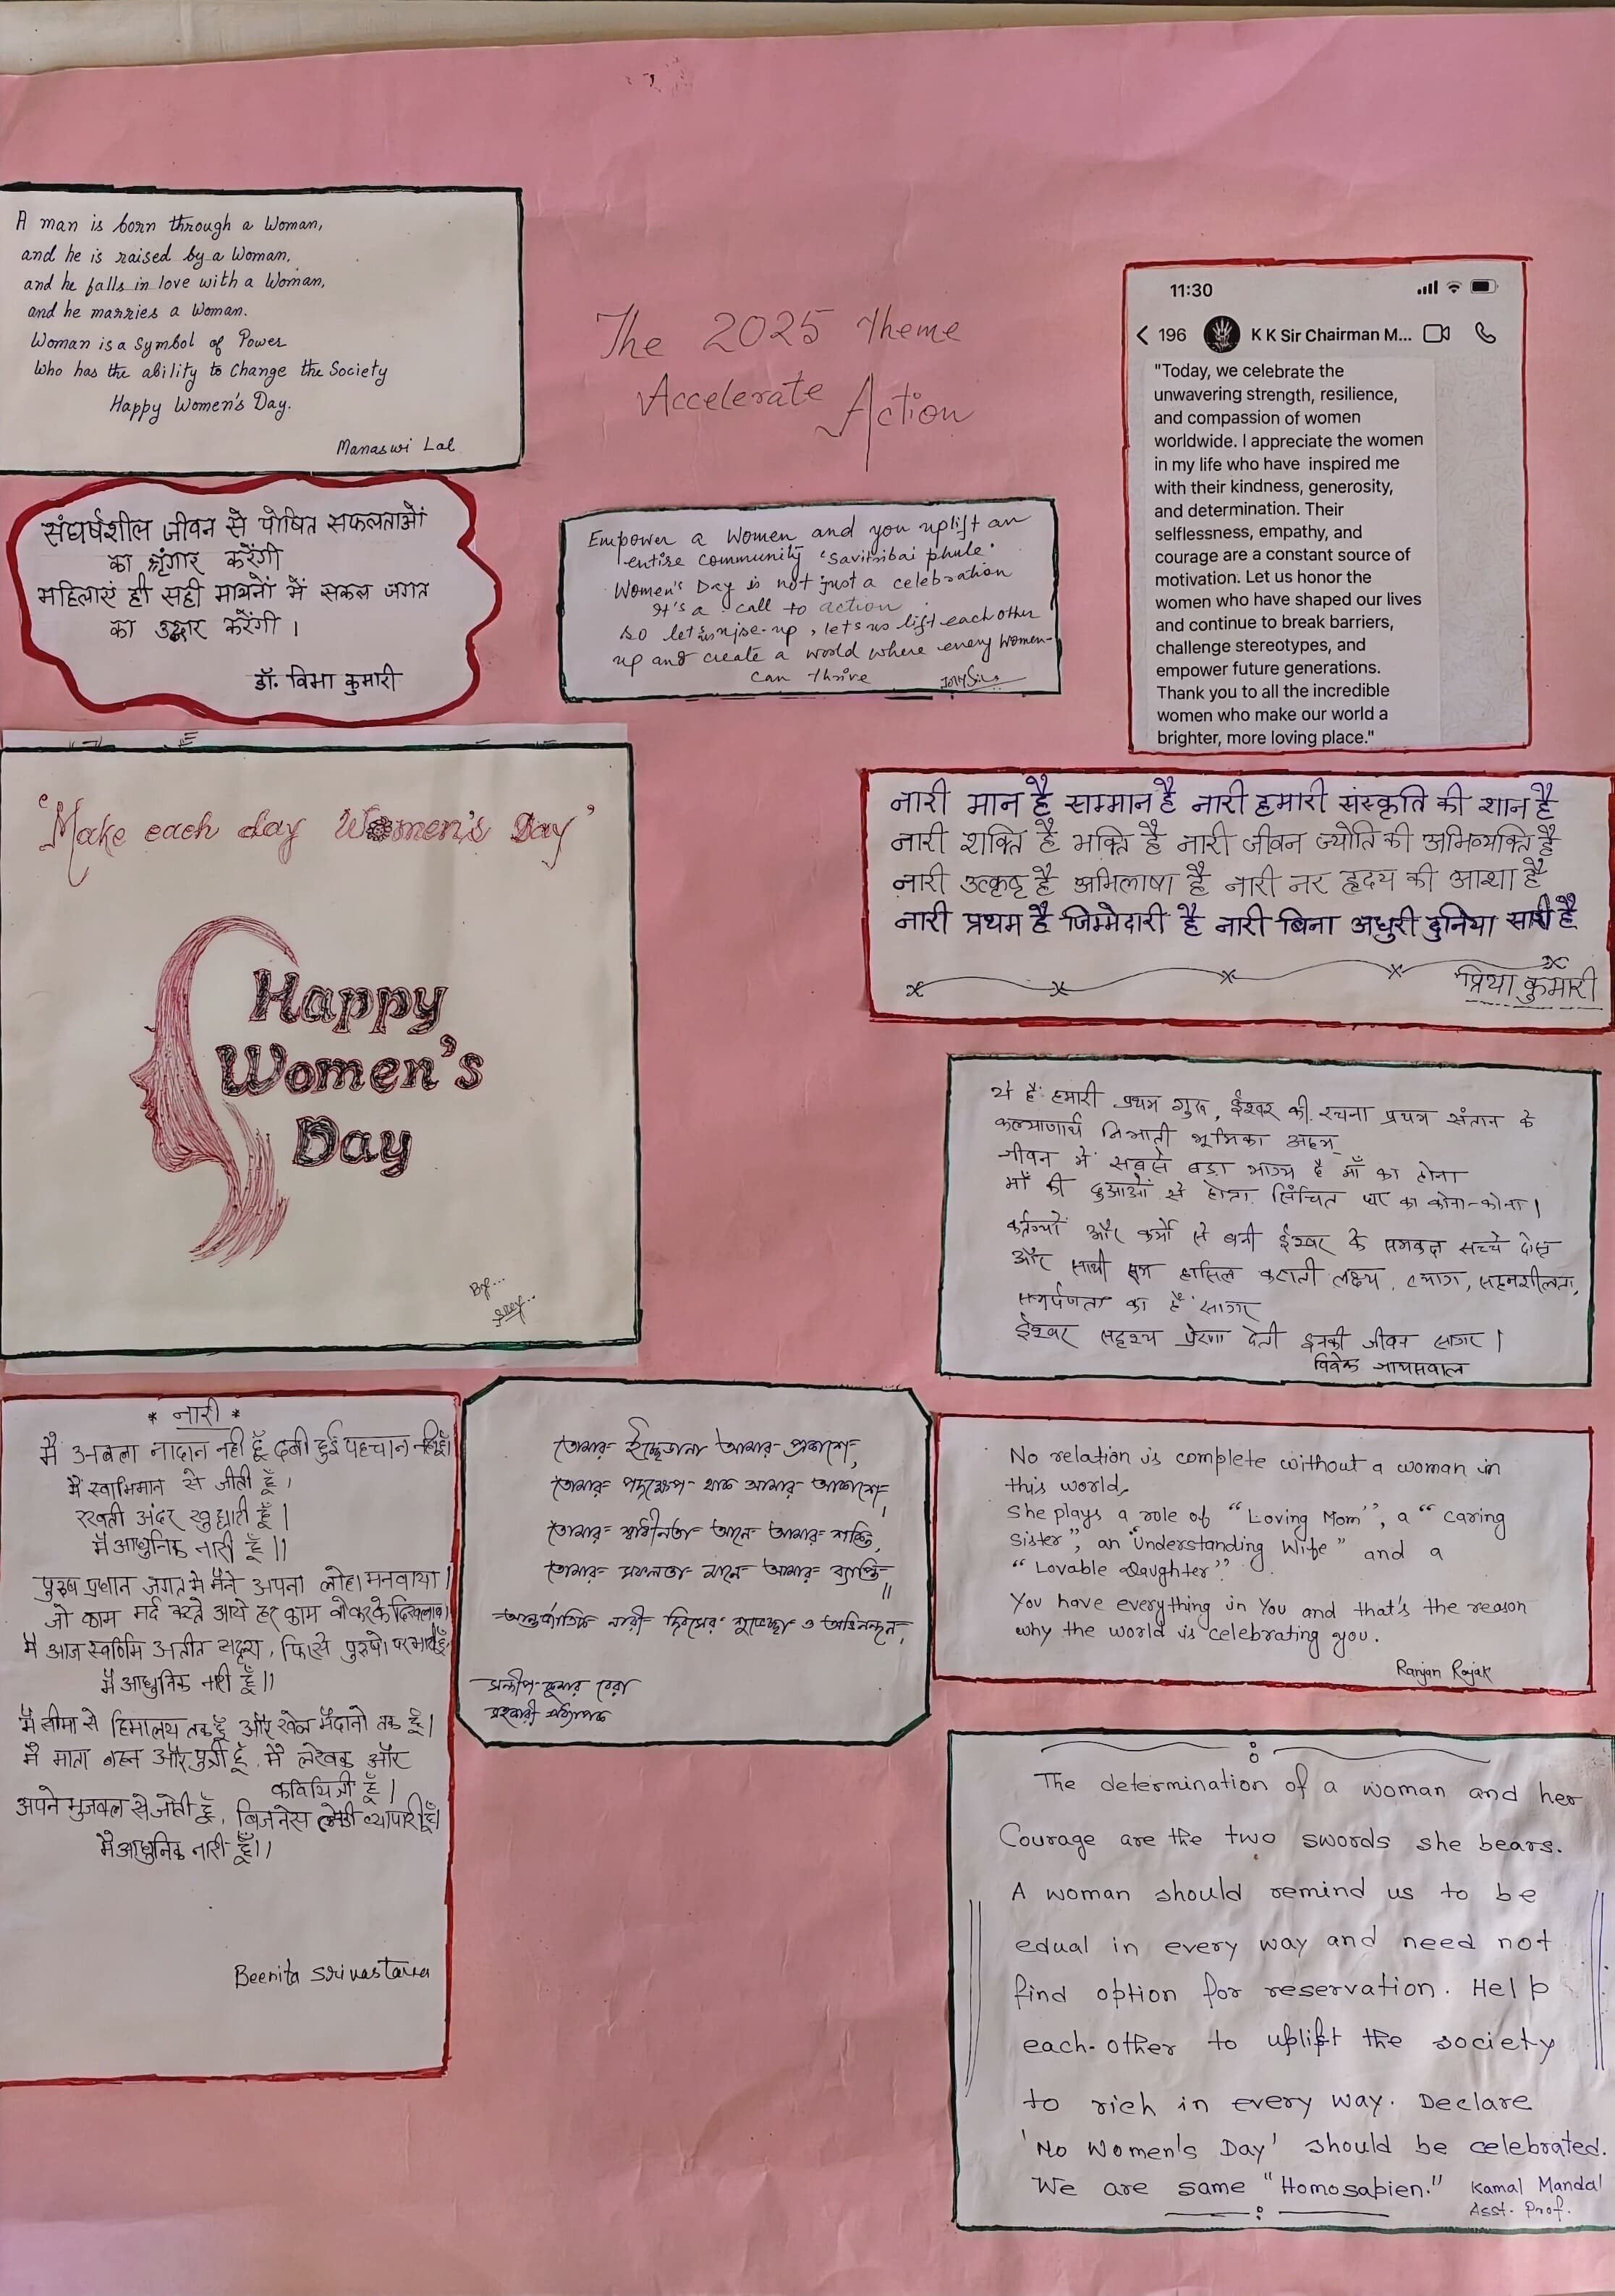 A man is born through a Woman,
and he is raised by a Woman,
and he falls in love with a Woman,
and he marries a Woman.
Woman is a Symbol of Power
Who has the ability to Change the Society
Happy Women's Day.
Manaswi Lal
The 2025 Theme
Accelerate Action
11:30
196 K K Sir Chairman M...
"Today, we celebrate the
unwavering strength, resilience,
and compassion of women
worldwide. I appreciate the women
in my life who have inspired me
with their kindness, generosity,
and determination. Their
selflessness, empathy, and
courage are a constant source of
motivation. Let us honor the
women who have shaped our lives
and continue to break barriers,
challenge stereotypes, and
empower future generations.
Thank you to all the incredible
women who make our world a
brighter, more loving place."
संघर्षशील जीवन से पोषित सफलताओं
का श्रृंगार करेंगी
महिलाएं ही सही मायनों में सकल जगत
का उद्धार करेंगी ।
डॉ. विभा कुमारी
Empower a Women and you uplift an
entire community 'Savitribai phule'
Women's Day is not just a celebration
It's a call to action
so let us rise-up, lets us lift each other
up and create a world where every women-
can thrive
'Make each day Women's Day'
Happy
Women's
Day
By...
नारी मान है सम्मान है नारी हमारी संस्कृति की शान है
नारी शक्ति है भक्ति है नारी जीवन ज्योति की अभिव्यक्ति है
नारी उत्कृष्ठ है अभिलाषा है नारी नर हृदय की आशा है
नारी प्रथम है जिम्मेदारी है नारी बिना अधुरी दुनिया सारी है
प्रिया कुमारी
ये हैं हमारी प्रथम गुरु, ईश्वर की रचना प्रथम संतान के
कल्याणार्थ निभाती भूमिका अहम्
जीवन में सबसे बड़ा भाग्य है माँ का होना
माँ की दुआओं से होता सिंचित घर का कोना-कोना।
कर्तव्यों और कर्मो से बनी ईश्वर के समकक्ष सच्चे दोस्त
और साथी हासिल कराती लक्ष्य, त्याग, सहनशीलता,
समर्पणता का है सागर
ईश्वर सदृश्य प्रेरणा देती इनकी जीवन सागर।
विवेक जायसवाल
* नारी *
मैं अबला नादान नहीं हूँ दबी हुई पहचान नहीं हूँ।
मैं स्वाभिमान से जीती हूँ,
रखती अंदर खुद्दारी हूँ।
मैं आधुनिक नारी हूँ।।
पुरुष प्रधान जगत मे मैंने अपना लोहा मनवाया।
जो काम मर्द करते आये हर काम वो करके दिखलाया।
मै आज स्वर्णिम अतीत सदृश, फिर से पुरुषो पर भारी हूँ
मैं आधुनिक नारी हूँ।।
मैं सीमा से हिमालय तक हूँ और खेल मैदानो तक हूँ।
मै माता बहन और पुत्री हूँ, मैं लेखक और
कवियित्री हूँ।
अपने भुजबल से जीती हूँ, बिजनेस लेडी व्यापारी हूँ।
मैं आधुनिक नारी हूँ।।
Beenita Srivastava
তোমার ইচ্ছেডানা আমার প্রকাশে,
তোমার পদক্ষেপ থাক আমার আকাশে,
তোমার স্বাধীনতা আনে আমার শক্তি,
তোমার সফলতা মানে আমার ব্যাপ্তি ॥
আন্তর্জাতিক নারী দিবসের শুভেচ্ছা ও অভিনন্দন,
কুমার বেরা
সহকারী অধ্যাপক
No relation is complete without a woman in
this world.
She plays a role of "Loving Mom", a "caring
Sister", an "Understanding Wife" and a
"Lovable Daughter".
You have everything in You and that's the reason
why the world is celebrating you.
Ranjan Rajak
The determination of a woman and her
Courage are the two swords she bears.
A woman should remind us to be
equal in every way and need not
find option for reservation. Help
each-other to uplift the society
to rich in every way. Declare
'No Women's Day' should be celebrated.
We are same "Homosapien." Kamal Mandal
Asst. Prof.